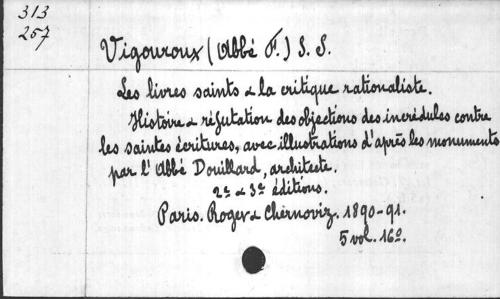 313
257
Vigouroux (Abbé F.) S. S.
Les livres saints & la critique rationaliste.
Histoire & réfutation des objections des incrédules contre
les saintes écritures, avec illustrations d'après les monuments
par l'Abbé Douillard, architecte.
2e & 3e éditions.
Paris. Roger & Chernoviz. 1890-91.
5 vol. 16o.